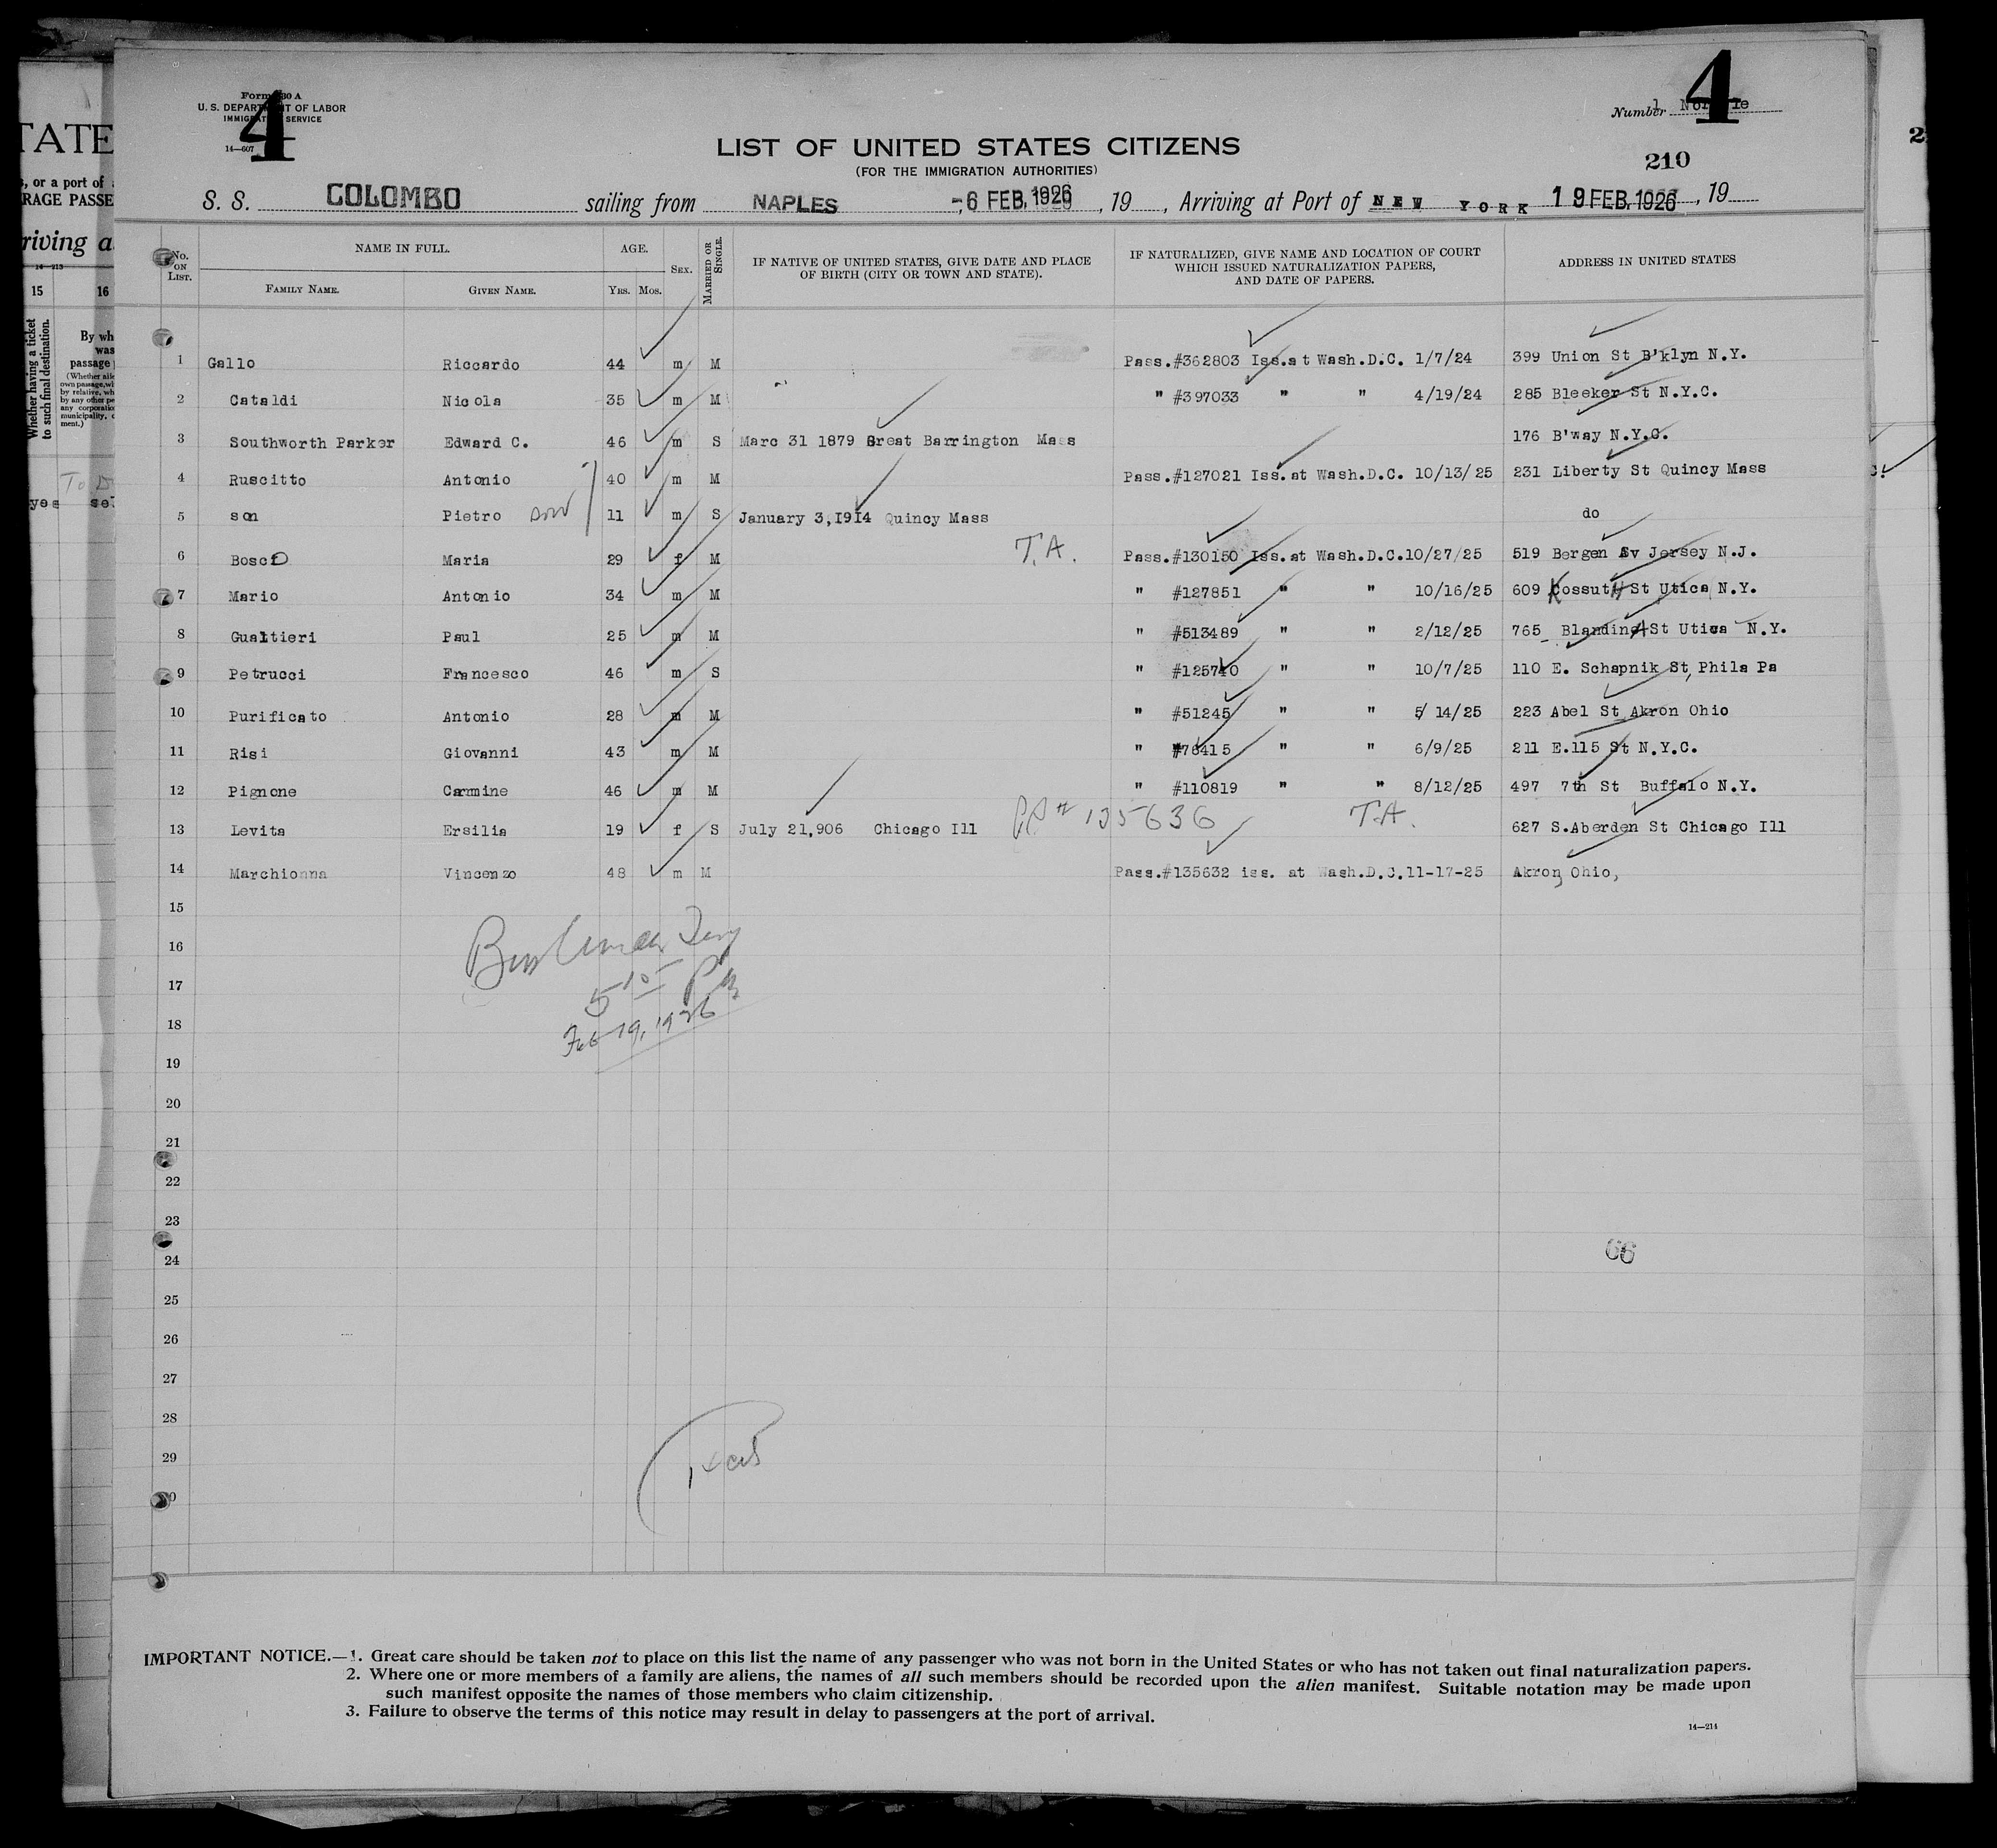 Form 630 A
U. S. DEPARTMENT OF LABOR
IMMIGRATION SERVICE
14—607
4
4
Number 1
210
LIST OF UNITED STATES CITIZENS
(FOR THE IMMIGRATION AUTHORITIES)
S. S. COLOMBO sailing from NAPLES -6 FEB. 1926, 19, Arriving at Port of NEW YORK 19 FEB. 1926, 19
No. ON LIST. NAME IN FULL. AGE. SEX. MARRIED OR SINGLE. IF NATIVE OF UNITED STATES, GIVE DATE AND PLACE OF BIRTH (CITY OR TOWN AND STATE). IF NATURALIZED, GIVE NAME AND LOCATION OF COURT WHICH ISSUED NATURALIZATION PAPERS, AND DATE OF PAPERS. ADDRESS IN UNITED STATES
FAMILY NAME. GIVEN NAME. YRS. MOS.
1 Gallo Riccardo 44 m M Pass.#362803 Iss.at Wash.D.C. 1/7/24 399 Union St B'klyn N.Y.
2 Cataldi Nicola 35 m M " #397033 " " 4/19/24 285 Bleeker St N.Y.C.
3 Southworth Parker Edward C. 46 m S Marc 31 1879 Great Barrington Mass 176 B'way N.Y.C.
4 Ruscitto Antonio 40 m M Pass.#127021 Iss.at Wash.D.C. 10/13/25 231 Liberty St Quincy Mass
5 son Pietro son 11 m S January 3,1914 Quincy Mass do
6 Bosco Maria 29 f M T.A. Pass.#130150 Iss.at Wash.D.C.10/27/25 519 Bergen Av Jersey N.J.
7 Mario Antonio 34 m M " #127851 " " 10/16/25 609 Kossuth St Utica N.Y.
8 Gualtieri Paul 25 m M " #513489 " " 2/12/25 765 Blandina St Utica N.Y.
9 Petrucci Francesco 46 m S " #125740 " " 10/7/25 110 E. Schapnik St, Phila Pa
10 Purificato Antonio 28 m M " #51245 " " 5/ 14/25 223 Abel St Akron Ohio
11 Risi Giovanni 43 m M " #76415 " " 6/9/25 211 E.115 St N.Y.C.
12 Pignone Carmine 46 m M " #110819 " " 8/12/25 497 7th St Buffalo N.Y.
13 Levita Ersilia 19 f S July 21,906 Chicago Ill PP # 135636 T.A. 627 S.Aberden St Chicago Ill
14 Marchionna Vincenzo 48 m M Pass.#135632 iss. at Wash.D.C.11-17-25 Akron, Ohio,
15
16
17
5 10 PM
18
Feb 19, 1926
19
20
21
22
23
24
66
25
26
27
28
29
30
IMPORTANT NOTICE.—1. Great care should be taken not to place on this list the name of any passenger who was not born in the United States or who has not taken out final naturalization papers.
2. Where one or more members of a family are aliens, the names of all such members should be recorded upon the alien manifest. Suitable notation may be made upon
such manifest opposite the names of those members who claim citizenship.
3. Failure to observe the terms of this notice may result in delay to passengers at the port of arrival.
14—214
TATE
, or a port of
RAGE PASSE
riving a
14—213
15 16
Whether having a ticket to such final destination.
By wh
was
passage
yes
2